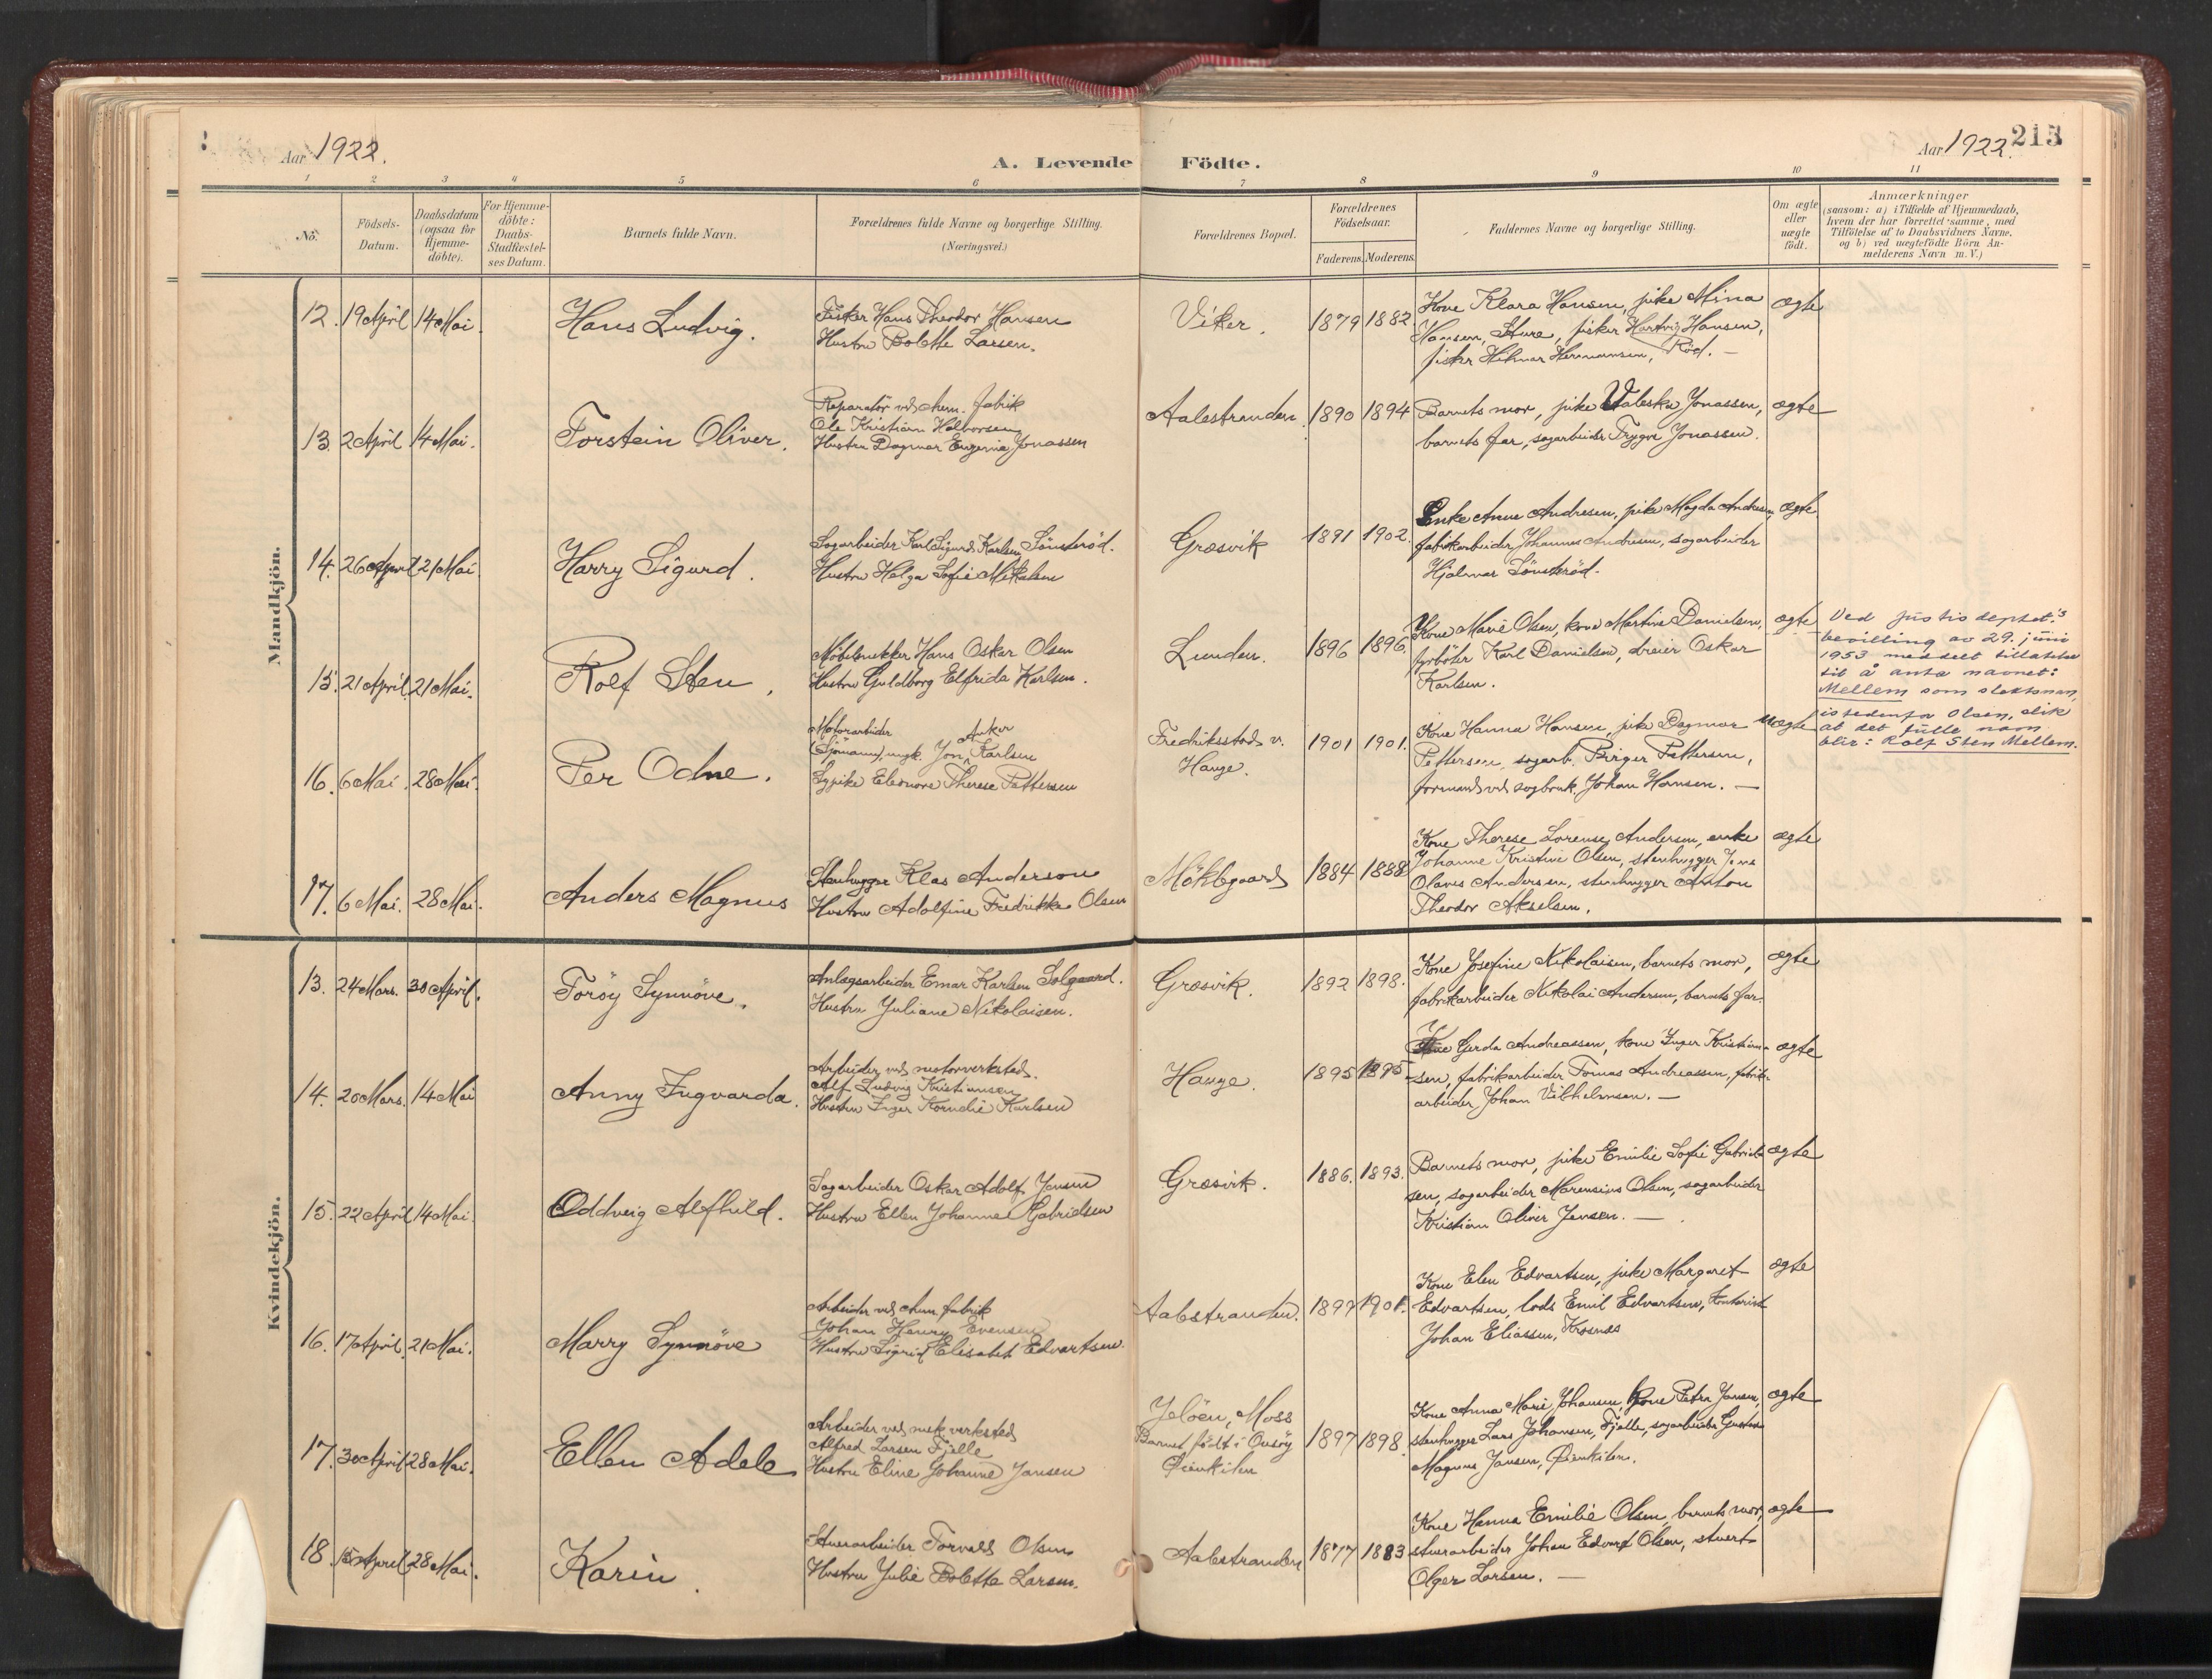 Aar 1922.
A. Levende Födte.
Aar 1922.
213
1 2 3 4 5 6 7 8 9 10 11
No.
Födsels-
Datum.
Daabsdatum
(ogsaa för
Hjemme-
döbte).
For Hjemme-
döbte:
Daabs-
Stadfæstel-
ses Datum.
Barnets fulde Navn.
Forældrenes fulde Navne og borgerlige Stilling.
(Næringsvei.)
Forældrenes Bopæl.
Forældrenes
Födselsaar.
Faderens. Moderens.
Faddernes Navne og borgerlige Stilling.
Om ægte
eller
uægte
födt.
Anmærkninger
(saasom: a) i Tilfælde af Hjemmedaab,
hvem der har forrettet samme, med
Tilföielse af to Daabsvidners Navne.
og b) ved uægtefödte Börn An-
melderens Navn m. V.)
Mandkjön.
12. 19 April 14 Mai.
Hans Ludvig.
Fisker Hans Theodor Hansen
Hustru Bolette Larsen.
Viker.
1879 1882.
Kone Klara Hansen, pike Mina
Hansen, Hture, fisker Hartvig Hansen,
fisker Hilmar Hermansen, Röd. —
ægte
13. 2 April 14 Mai.
Torstein Oliver.
Reparatör ved chem. fabrik
Ole Kristian Halvorsen
Hustru Dagmar Eugenie Jonassen
Aalestranden.
1890 1894
Barnets mor, pike Valeska Jonassen,
barnets far, sagarbeider Trygve Jonassen.
ægte
14. 26 April 21 Mai
Harry Sigurd.
Sagarbeider Karl Sigurd Karlsen Sönsteröd.
Hustru Helga Sofie Mikalsen
Græsvik
1891 1902.
Enke Anne Andresen, pike Magda Andresen,
fabrikarbeider Johannes Andresen, sagarbeider
Hjalmar Sönsteröd.
ægte.
15. 21 April. 21 Mai.
Rolf Sten.
Möbelsnekker Hans Oskar Olsen
Hustru Guldborg Elfrida Karlsen.
Lunden.
1896 1896.
Kone Marie Olsen, kone Martine Danielsen,
fyrböter Karl Danielsen, dreier Oskar
Karlsen.
ægte
Ved justisdeptet's
bevilling av 29. juni
1953 meddelt tillatelse
til å anta navnet:
Mellem som slektsnavn,
istedenfor Olsen, slik
at det fulle navn
blir: Rolf Sten Mellem.
16. 6 Mai. 28 Mai.
Per Odne.
Motorarbeider
(Sjömann), ungk. Jon Anker Karlsen
Sypike Eleonore Therese Pettersen
Fredriksstad v.
Hauge.
1901 1901.
Kone Hanna Hansen, pike Dagmar
Pettersen, sagarb. Birger Pettersen,
formand ved sagbruk. Johan Hansen. —
uægte
17. 6 Mai. 28 Mai.
Anders Magnus
Stenhugger Klas Anderson
Hustru Adolfine Fredrikke Olsen
Möklegaard
1884 1888
Kone Therese Lorense Andersen, enke
Johanne Kristine Olsen, stenhugger Jens
Olaves Andersen, stenhugger Anton
Theodor Akselsen.
ægte
Kvindekjön.
13. 24 Mars. 30 April.
Toröy Synnöve.
Anlægsarbeider Emar Karlsen Solgaard.
Hustru Juliane Nikolaisen.
Græsvik.
1892 1898.
Kone Josefine Nikolaisen, barnets mor,
fabrikarbeider Nikolai Andersen, barnets far.
ægte
14. 20 Mars. 14 Mai
Anny Ingvarda.
Arbeider ved motorverksted.
Alf Ludvig Kristiansen
Hustru Inger Kornelie Karlsen
Hauge.
1895 1895
Kone Gerda Andreassen, kone Inger Kristian-
sen, fabrikarbeider Tomas Andreassen, fabrik-
arbeider Johan Vilhelmsen. —
ægte
15. 22 April 14 Mai.
Oddveig Alfhild.
Sagarbeider Oskar Adolf Jensen
Hustru Ellen Johanne Gabrielsen
Græsvik.
1886. 1893.
Barnets mor, pike Emilie Sofie Gabriel-
sen, sagarbeider Marensius Olsen, sagarbeider
Kristian Oliver Jensen. —
ægte
16. 17 April. 21 Mai.
Marry Synnöve
Arbeider ved chem. fabrik
Johan Henry Evensen
Hustru Sigrid Elisabet Edvartsen.
Aalestranden.
1897 1901.
Kone Elen Edvartsen, pike Margaret
Edvartsen, lods Emil Edvartsen, kontorist
Johan Eliassen, Krosnes
ægte
17. 30 April 28 Mai.
Ellen Adele
Arbeider ved mek. verksted
Alfred Larsen Fjelle
Hustru Eline Johanne Jansen
Jelöen, Moss
Barnet födt i Onsöy
Öienkilen
1897 1898.
Kone Anna Marie Johansen, kone Petra Jansen,
stenhugger Lars Johansen, Fjelle, sagarbeider Gustav
Magnus Jansen, Öienkilen.
ægte
18. 15 April 28 Mai.
Karin.
Stuerarbeider Torvald Olsen
Hustru Julie Bolette Larsen.
Aalestranden
1877 1883
Kone Hanna Emilie Olsen, barnets mor,
stuerarbeider Johan Edvard Olsen, stuert
Olger Larsen. —
ægte